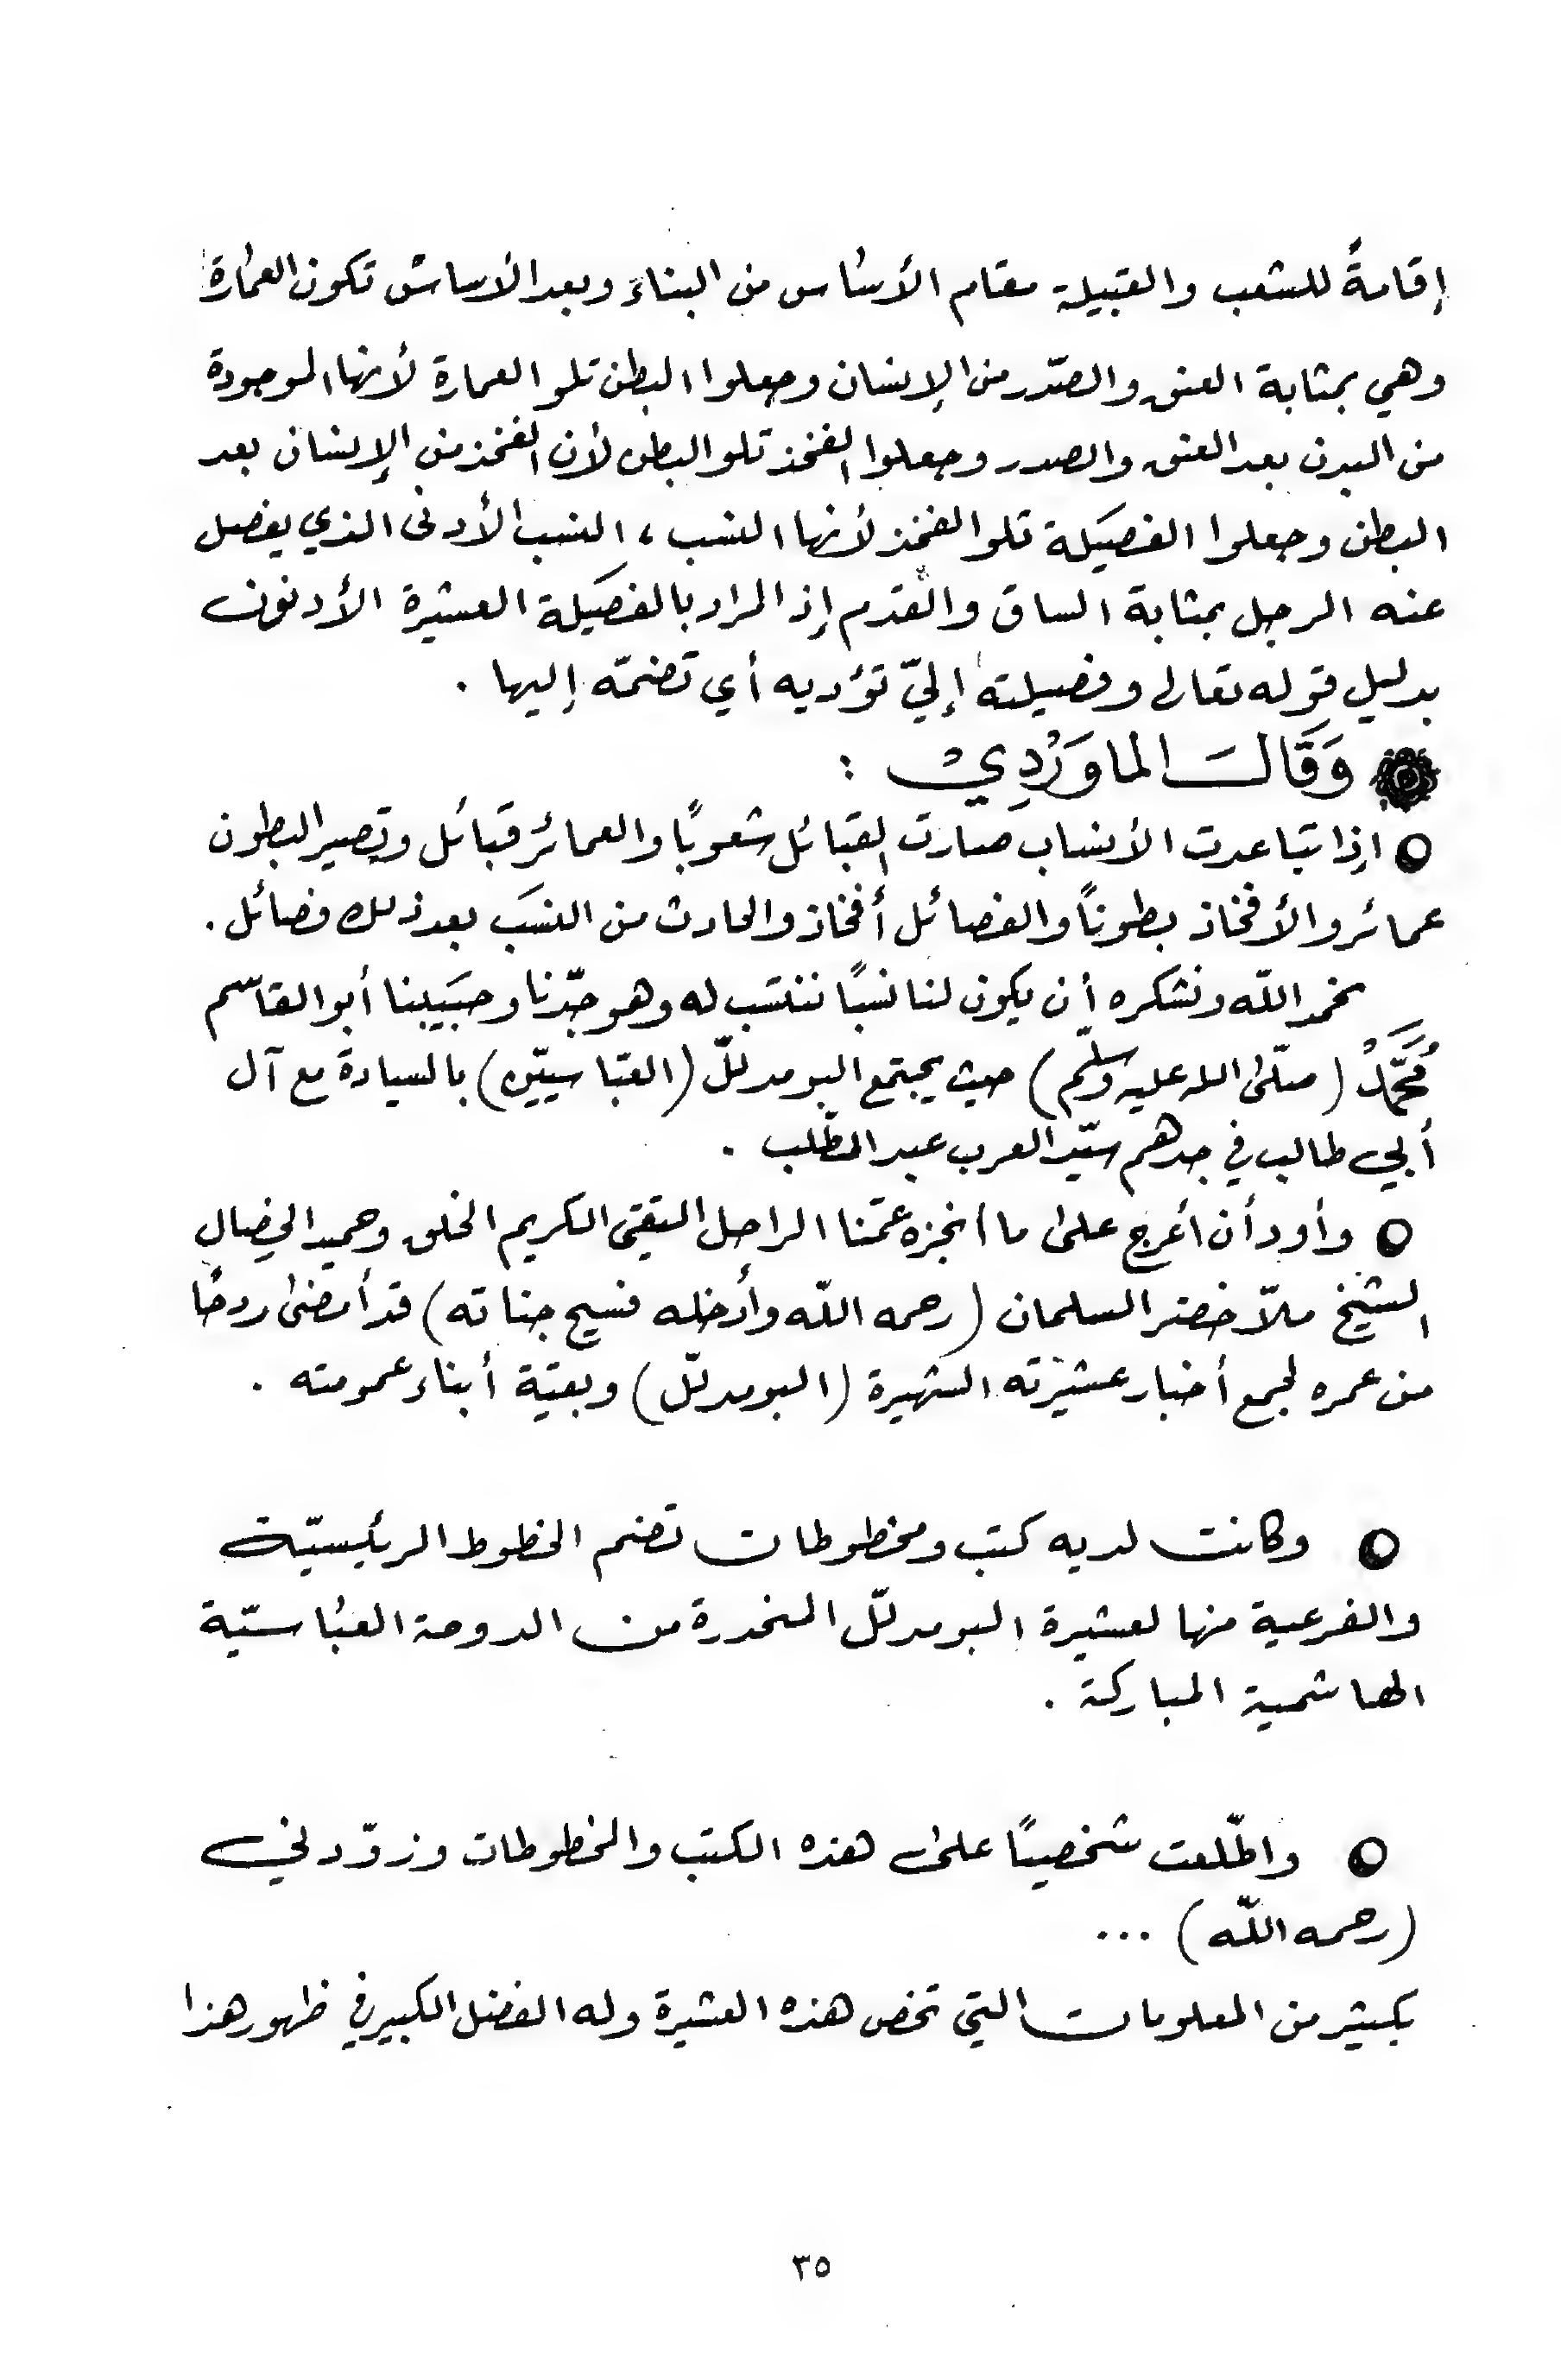 إقامةً للشعب والقبيلة مقام الأساس من البناء وبعد الأساس تكون العمارة
وهي بمثابة العنق والصّدر من الإنسان وجعلوا البطن تلو العمارة لأنها الموجودة
من البدن بعد العنق والصدر وجعلوا الفخذ تلو البطن لأن الفخذ من الإنسان بعد
البطن وجعلوا الفصيلة تلو الفخذ لأنها النسب ، النسب الأدنى الذي يفصل
عنه الرجل بمثابة الساق والقدم إذ المراد بالفصيلة العشيرة الأدنون
بدليل قوله تعالى وفصيلته إليّ تؤديه أي تضمّه إليها .
وَقَالَ الماوَرْدِي :
اذِا تباعدت الأنساب صارت القبائل شعوبًا والعمائر قبائل وتصير البطون
عمائر والأفخاذ بطونًا والفصائل أفخاذ والحادث من النسَب بعد ذلك فصائل .
نحمد اللّه ونشكره أن يكون لنا نسبًا ننتسب له وهو جدّنا وحبيبنا أبو القاسم
مُحَمَّدْ ( صلّى الله عليه وسلّم ) حيث يجتمع البو مدللّ ( العبّاسييّن ) بالسيادة مع آل
أبي طالب في جدهم سيّد العرب عبد المطّلب .
وأود أن أعرج على ما انجزه عمّنا الراحل التقي الكريم الخلق وحميد الخصال
الشيخ ملاّ خضر السلمان ( رحمه اللّه وأدخله فسيح جناته ) قد أمضى ردحًا
من عمره لجمع أخبار عشيرته الشهيرة ( البو مدللّ ) وبقيّة أبناء عمومته .
وكانت لديه كتب ومخطوطات تضم الخطوط الرئيسيّة
والفرعية منها لعشيرة البو مدللّ المنحدرة من الدوحة العباسيّة
الهاشمية المباركة .
واطّلعت شخصيًا على هذه الكتب والمخطوطات وزوّدني
( رحمه اللّه ) ...
بكثير من المعلومات التي تخص هذه العشيرة وله الفضل الكبير في ظهور هذا
٣٥